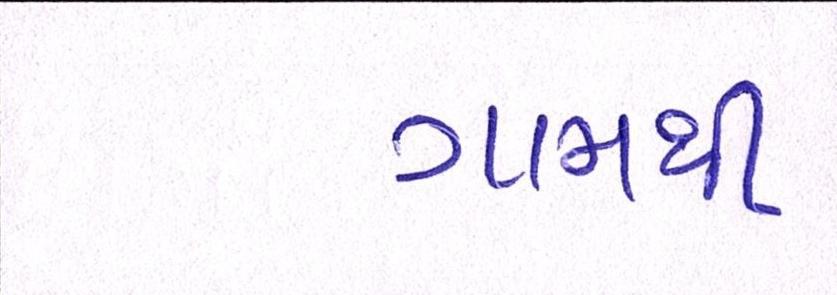 ગામથી